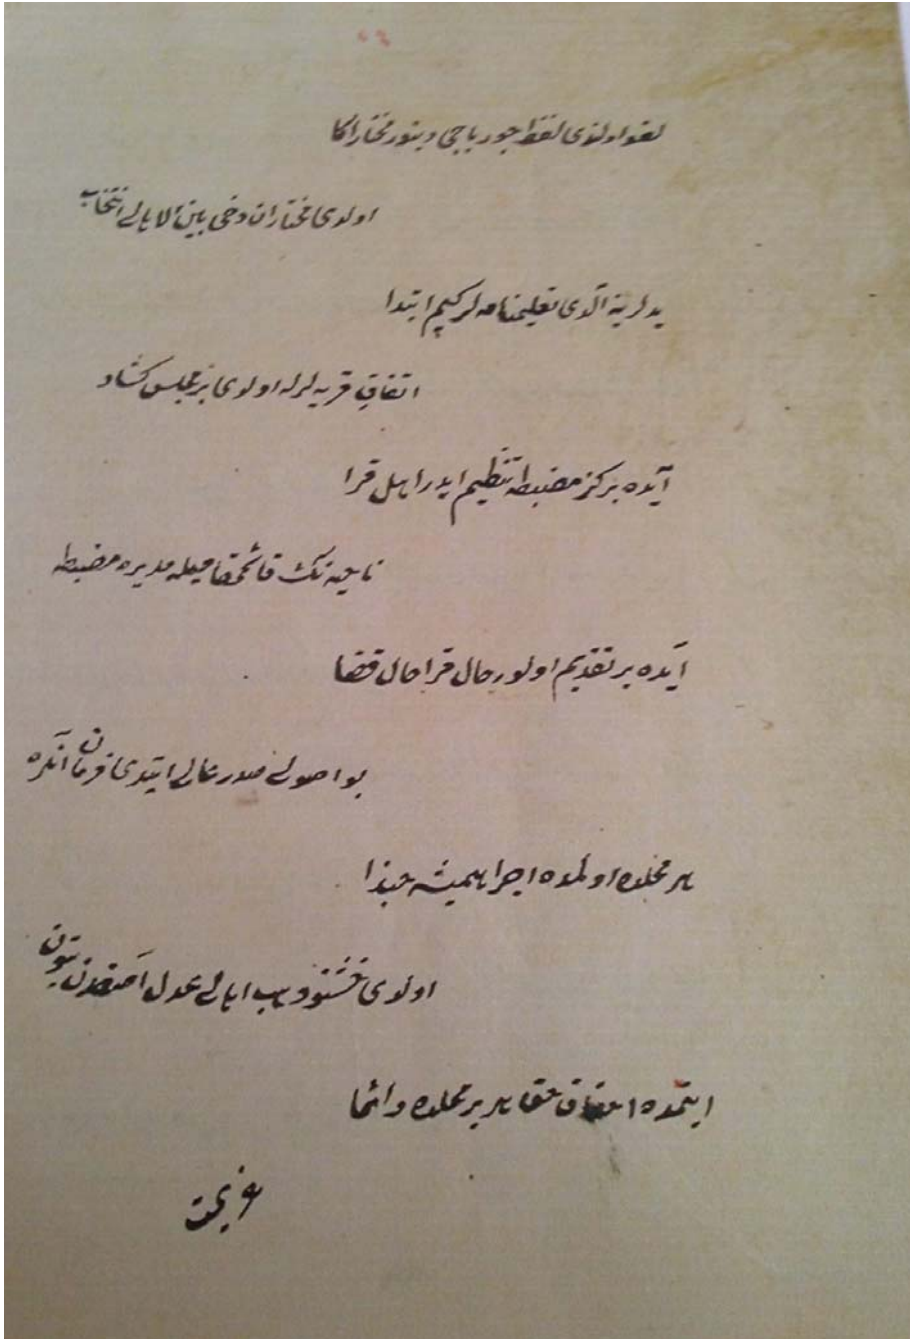 لغو اولندی لفظ چورباجی و بتور مختار اكا
اولدی مختاران دخی بین الاهالی انتخاب
یدلرینه آلدی تعلیمنامه لر كیم ابتدا
اتفاق قریه لرله اولدی بر مجلس كشاد
آیده بركز مضبطه تنظیم ایدر اهل قرا
ناحیه نك قائمقامیله مدیره مضبطه
آیده بر تقدیم اولور حال قرا حال قضا
بو اصولی صدر عالی ایتدی فرمان آنده
هر محلده اولمده اجرا همیشه حبذا
اولدی خشنود هب اهالی عدل بتون
ایتمده احقاق حق هر بر محلده دائما